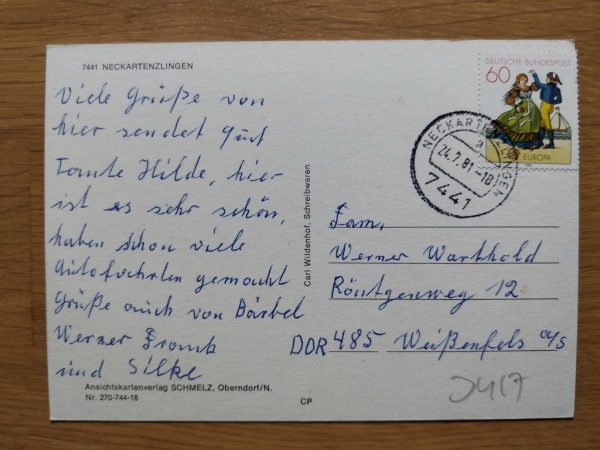 7441 NECKARTENZLINGEN
Viele Grüße von
hier sendet Euch
Tante Hilde, hier
ist es sehr schön,
haben schon viele
Autofahrten gemacht
Grüße auch von Bärbel
Werner Frank
und Silke
Ansichtskartenverlag SCHMELZ, Oberndorf/N.
Nr. 270-744-18
CP
Carl Wildenhof, Schreibwaren
DEUTSCHE BUNDESPOST
60
EUROPA
NECKARTENZLINGEN
a
24.7.81-18
7441
Fam.
Werner Warthold
Röntgenweg 12
DDR 485 Weißenfels